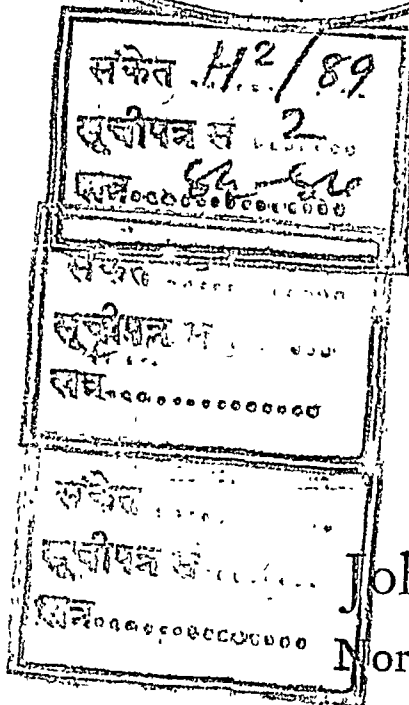 संकेत H²/89
सूचीपत्र सं 2
सन्
संकेत
सूचीपत्र सं
सन्
संकेत
सूचीपत्र सं
सन्
Joh
Nor